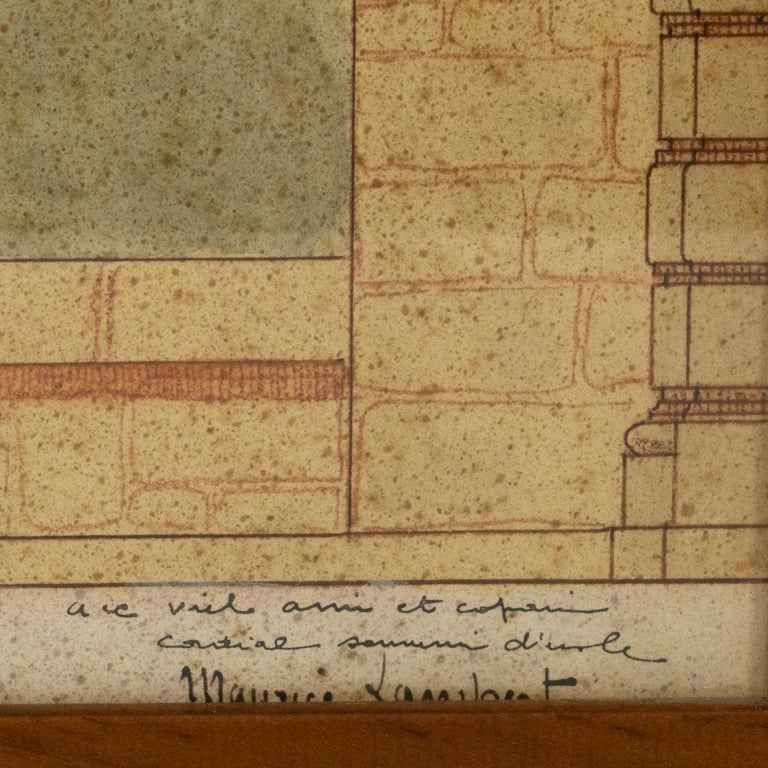 a ce vieil ami et copain
cordial souvenir d'école
Maurice Lambert